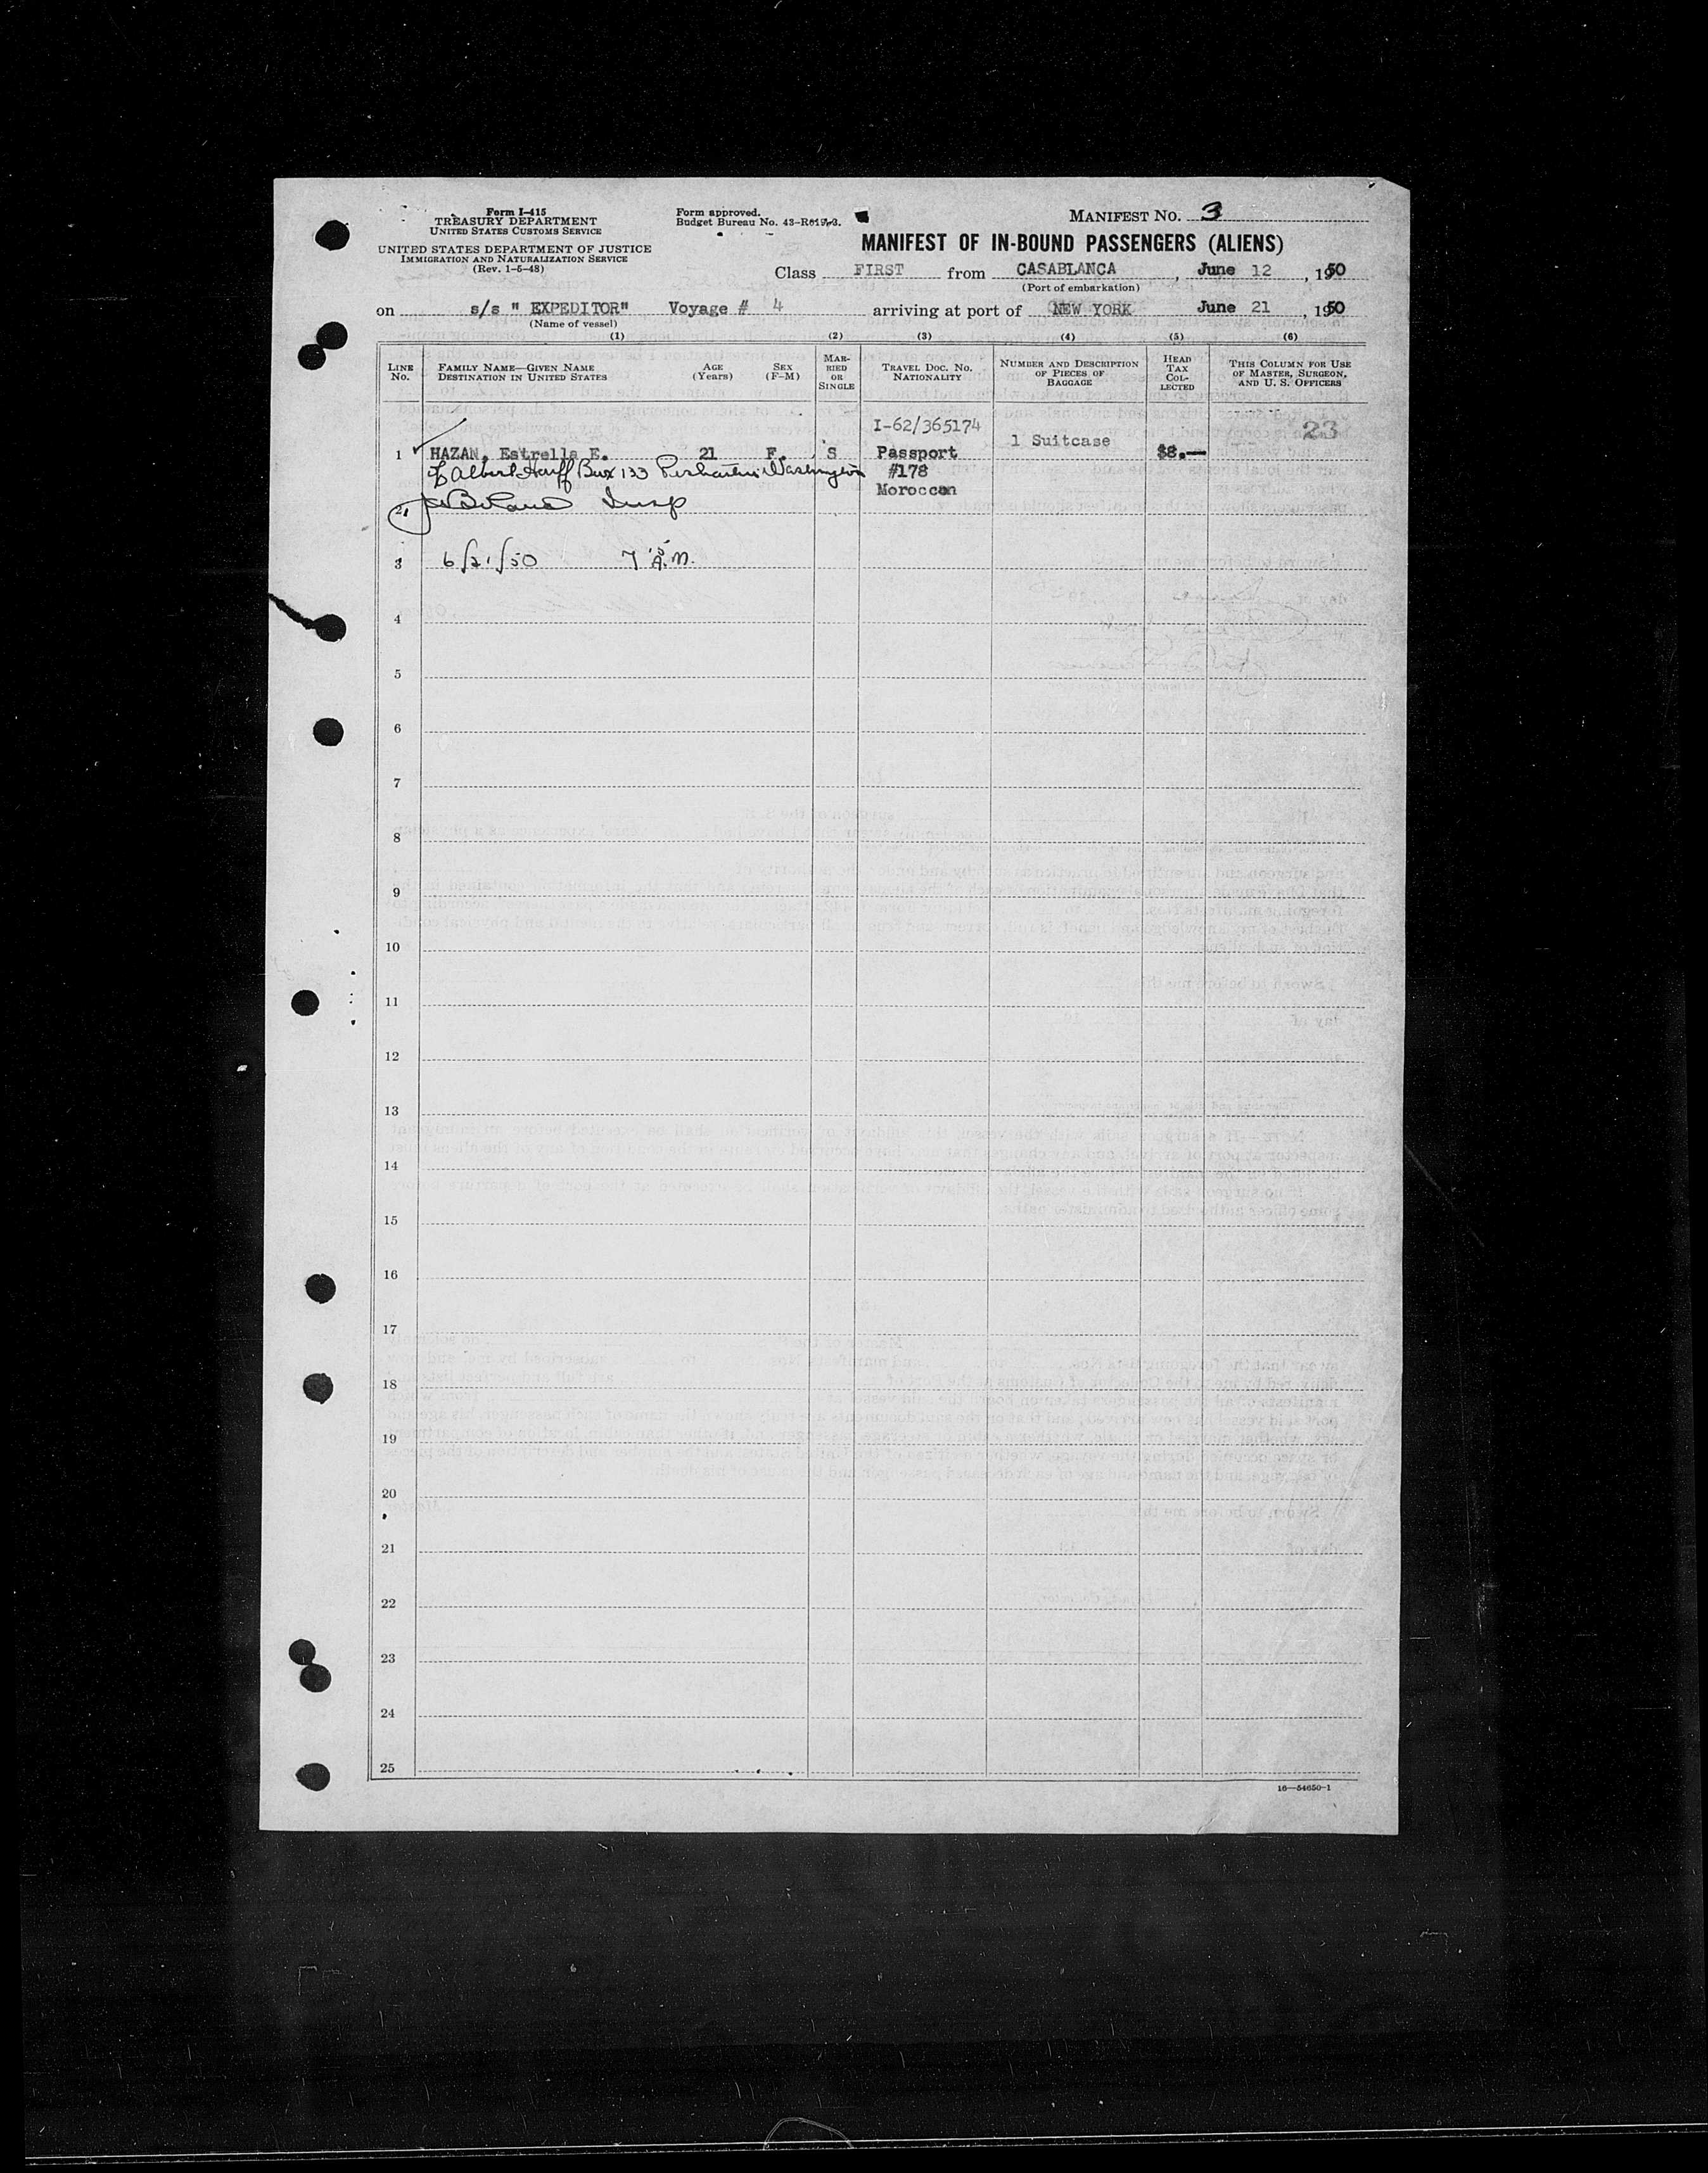 Form I-415
TREASURY DEPARTMENT
UNITED STATES CUSTOMS SERVICE
UNITED STATES DEPARTMENT OF JUSTICE
IMMIGRATION AND NATURALIZATION SERVICE
(Rev. 1-5-48)
Form approved.
Budget Bureau No. 43-R019.3.
MANIFEST NO. 3
MANIFEST OF IN-BOUND PASSENGERS (ALIENS)
Class FIRST from CASABLANCA, June 12, 1950
(Port of embarkation)
on s/s " EXPEDITOR" Voyage # 4 arriving at port of NEW YORK June 21, 1950
(Name of vessel)
(1) (2) (3) (4) (5) (6)
LINE No.
FAMILY NAME—GIVEN NAME
DESTINATION IN UNITED STATES
AGE
(Years)
SEX
(F-M)
MAR-
RIED
OR
SINGLE
TRAVEL DOC. NO.
NATIONALITY
NUMBER AND DESCRIPTION
OF PIECES OF
BAGGAGE
HEAD
TAX
COL-
LECTED
THIS COLUMN FOR USE
OF MASTER, SURGEON,
AND U. S. OFFICERS
I-62/365174
23
1 Suitcase
1 HAZAN, Estrella E. 21 F. S Passport $8.—
Albert Box 133 Washington #178
Moroccan
2 Insp
3 6/21/50 7 A.M.
4
5
6
7
8
9
10
11
12
13
14
15
16
17
18
19
20
21
22
23
24
25
16—54650-1